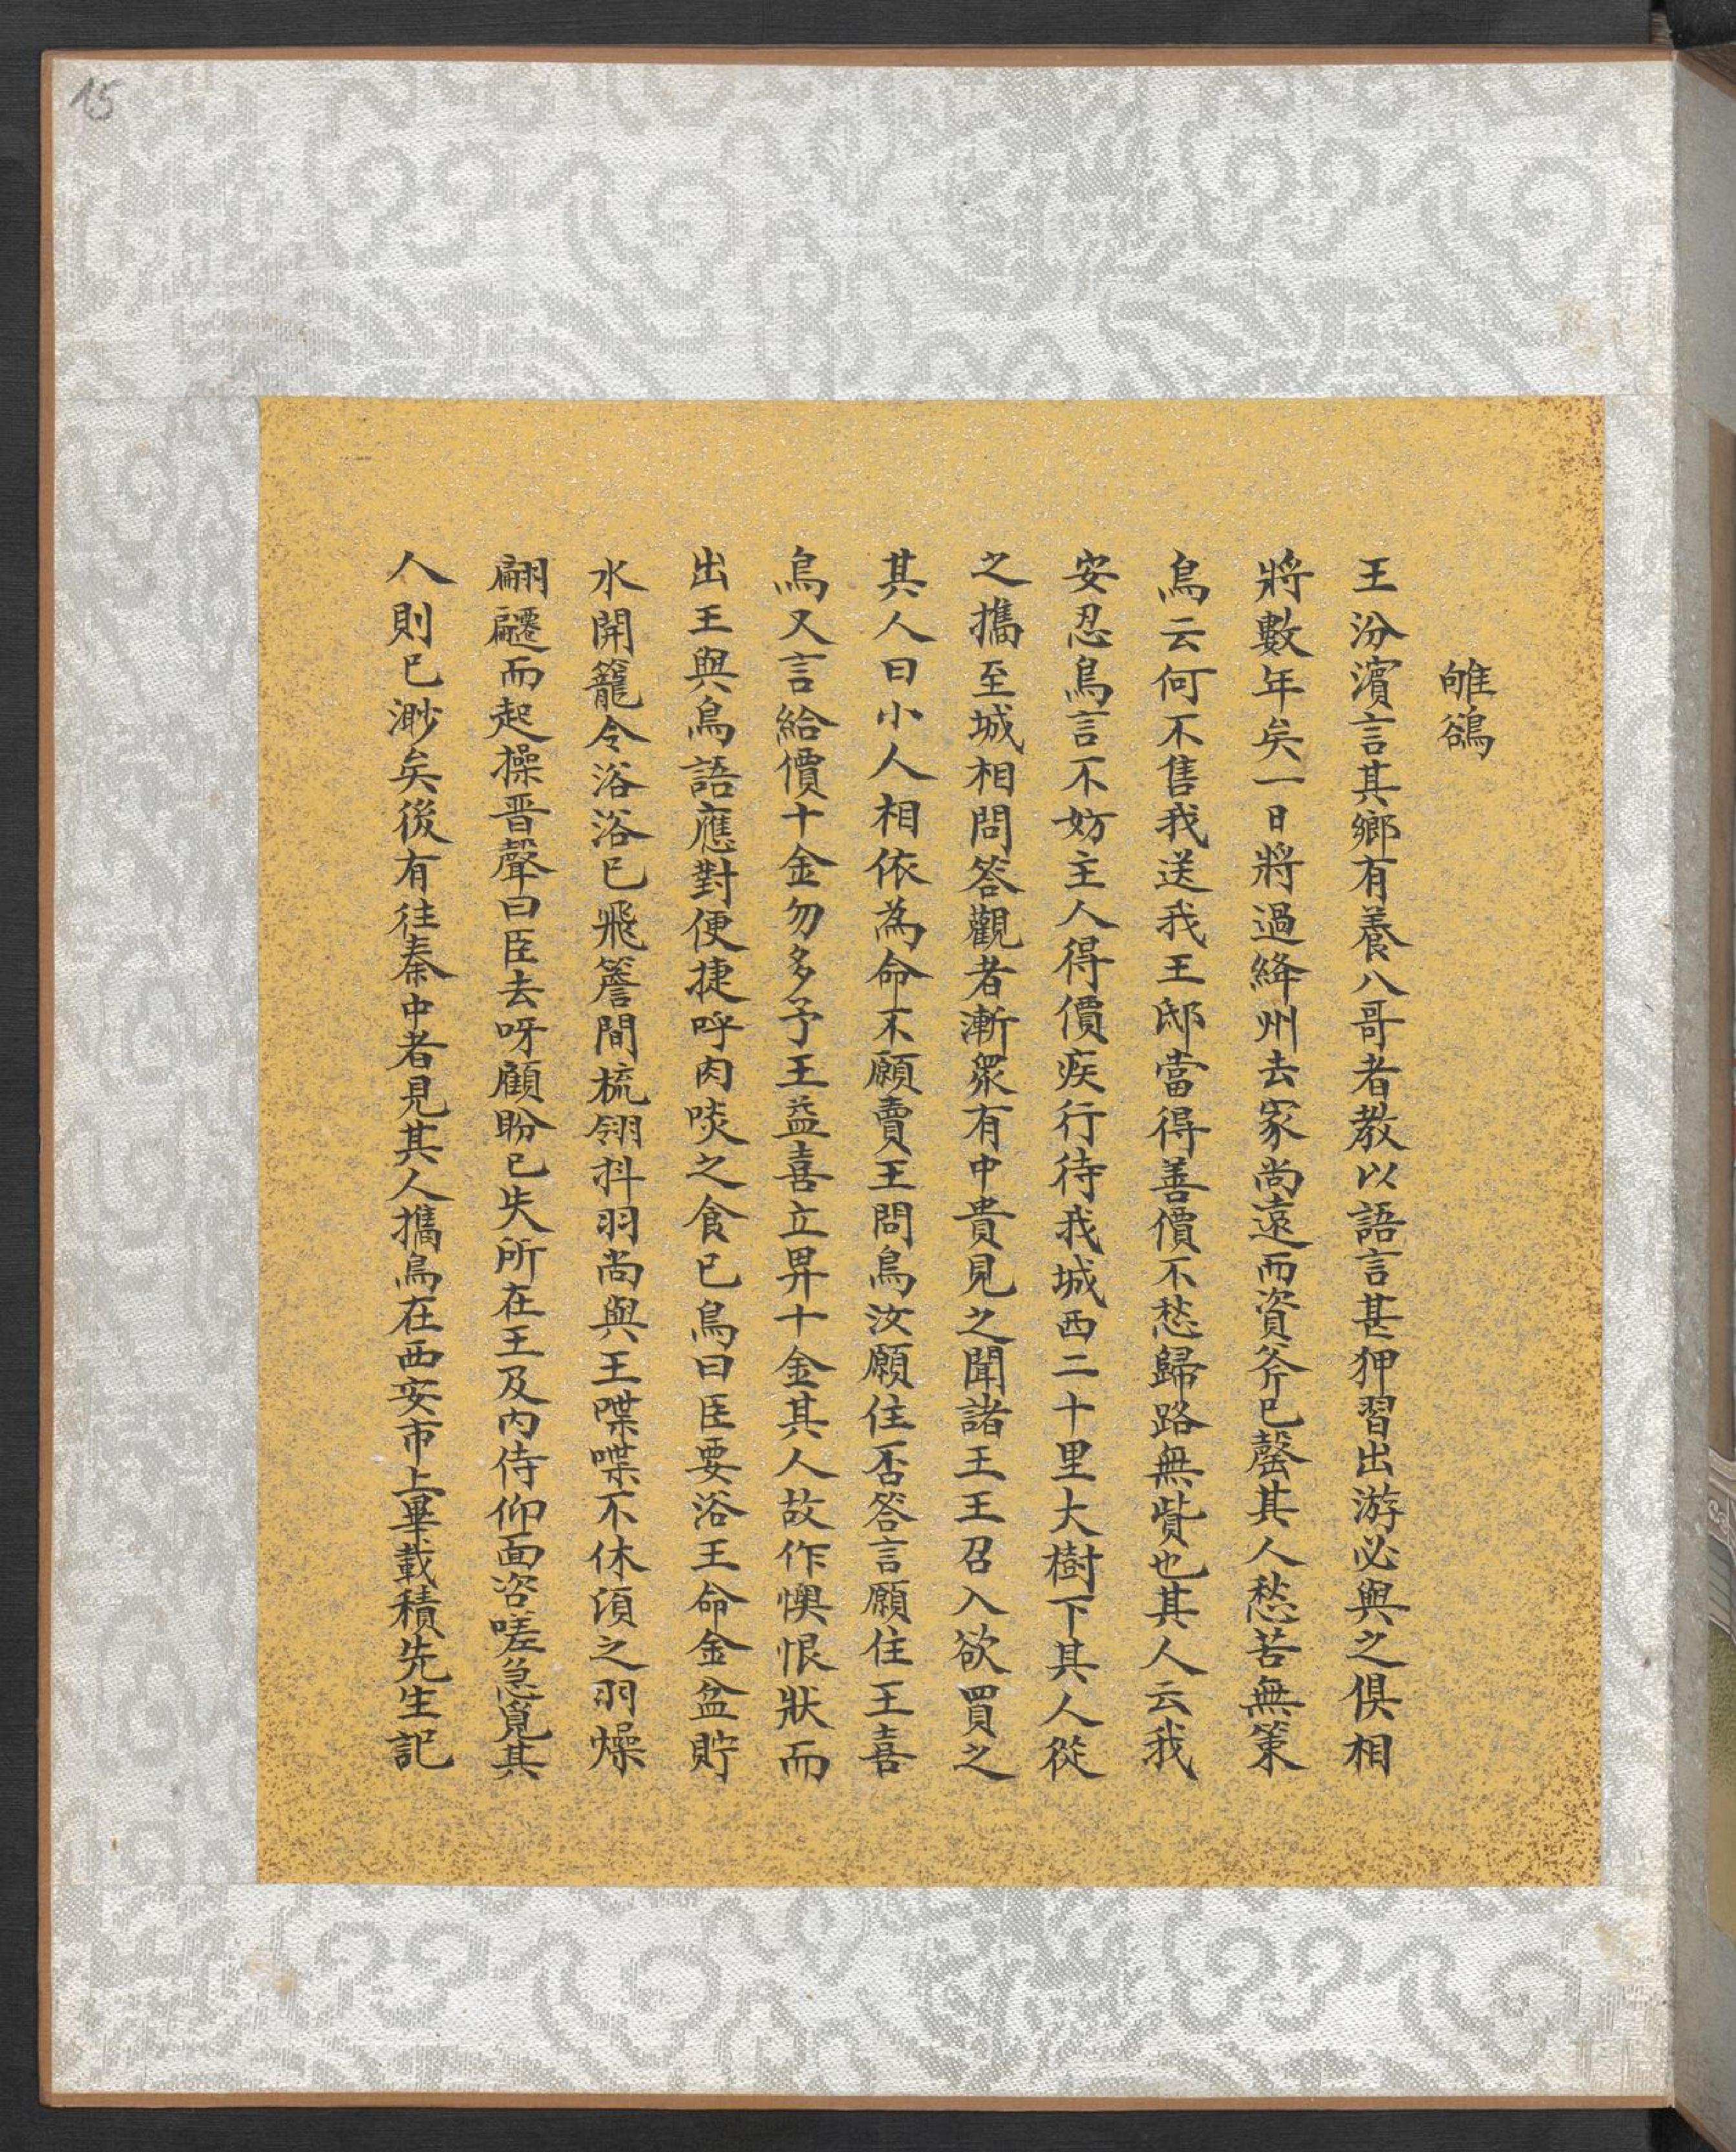 15
雊鵒
王汾濱言其鄉有養八哥者教以語言甚狎習出游必與之俱相
將數年矣一日將過絳州去家尚遠而資斧已罄其人愁苦無策
鳥云何不售我送我王邸當得善價不愁歸路無貲也其人云我
安忍鳥言不妨主人得價疾行待我城西二十里大樹下其人從
之攜至城相問答觀者漸衆有中貴見之聞諸王王召入欲買之
其人曰小人相依為命不願賣王問鳥汝願住否答言願住王喜
鳥又言給價十金勿多予王益喜立畀十金其人故作懊恨狀而
出王與鳥語應對便捷呼肉啖之食已鳥曰臣要浴王命金盆貯
水開籠令浴浴已飛簷間梳翎抖羽尚與王喋喋不休須之羽燥
翩躚而起操晋聲曰臣去呀顧盼已失所在王及内侍仰面咨嗟急覓其
人則已渺矣後有往秦中者見其人攜鳥在西安市上畢載積先生記